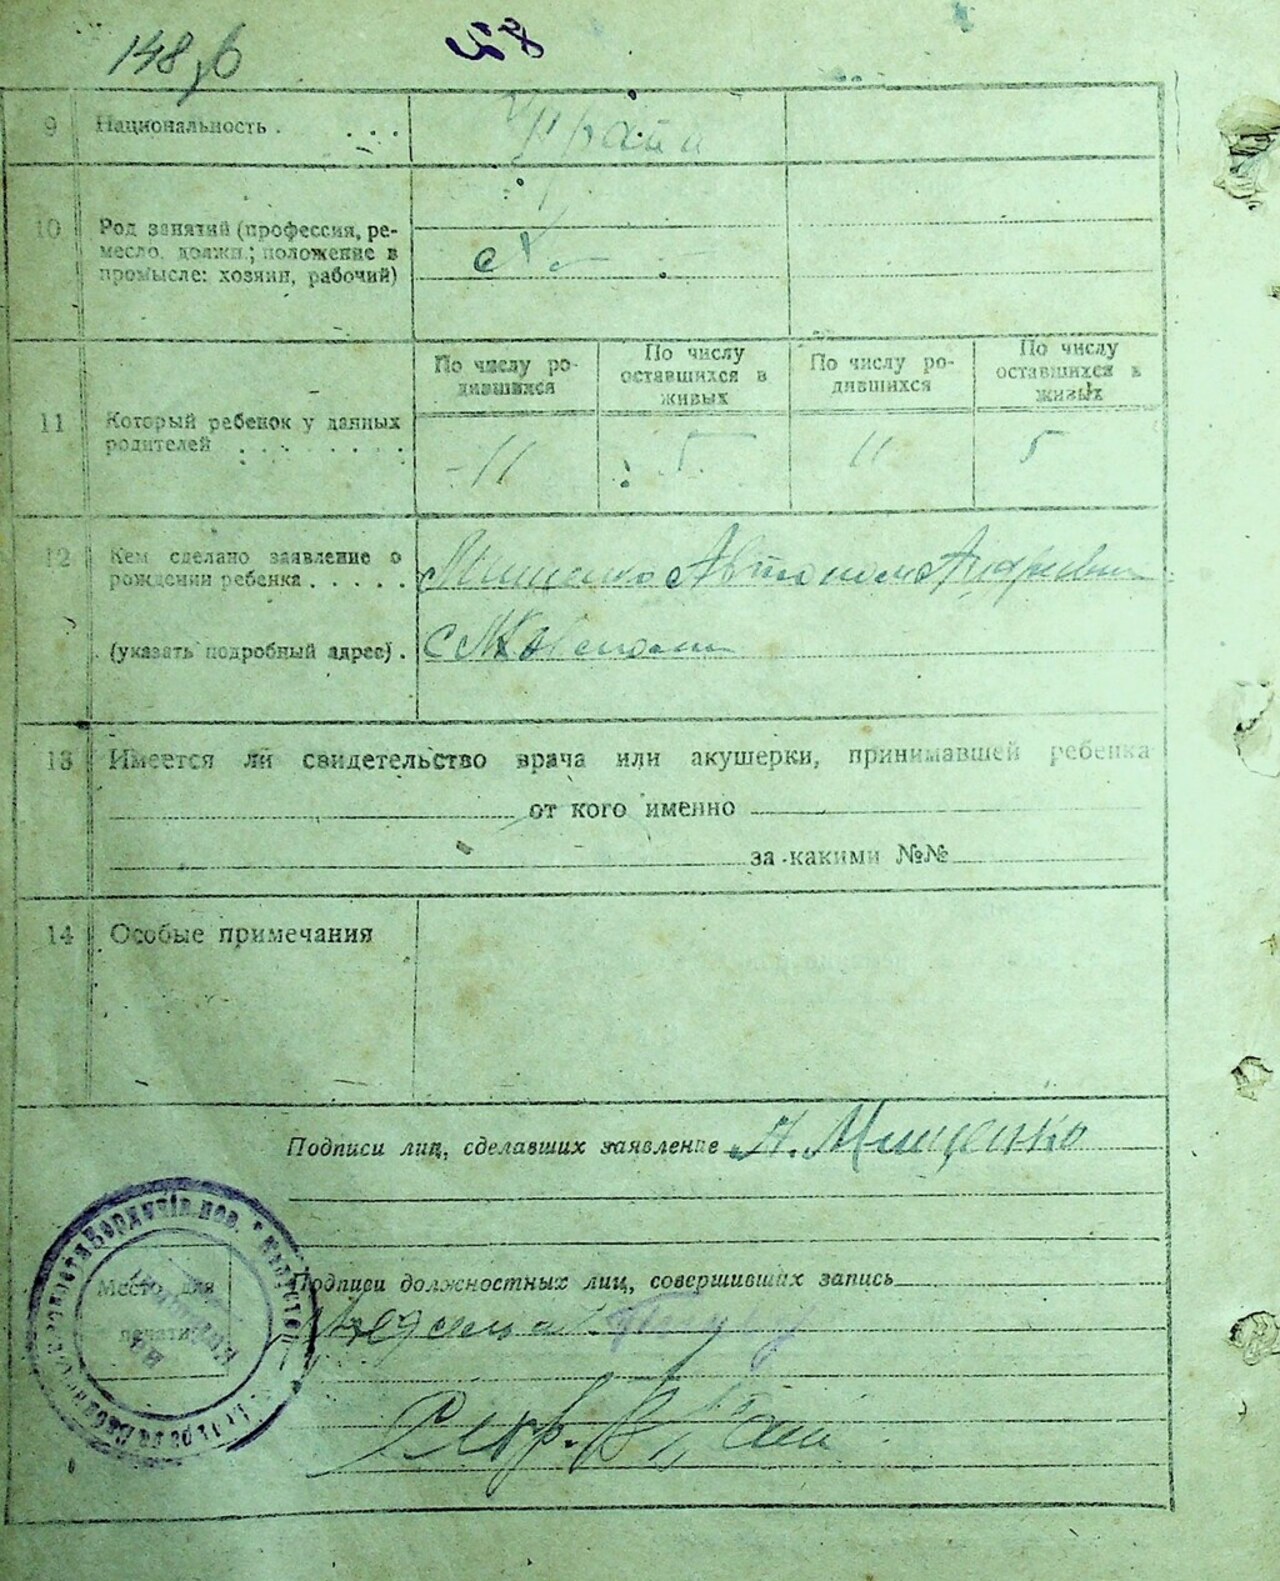 148 28
9 Национальность . . . . Украін
10 Род занятий (профессия, ре-
месло, должн.; положение в
промысле: хозяин, рабочий)
По числу ро-
дившихся
По числу
оставшихся в
живых
По числу ро-
дившихся
По числу
оставшихся в
живых
11 Который ребенок у данных
родителей . . . . . . .
11 5 11 5
12 Кем сделано заявление о
рождении ребенка . . . . . Мищенко Автоном Андреевич
(указать подробный адрес) .
13 Имеется ли свидетельство врача или акушерки, принимавшей ребенка
от кого именно
за какими №№
14 Особые примечания
Подписи лиц, сделавших заявление А. Мищенко
Место для
печати
Подписи должностных лиц, совершивших запись